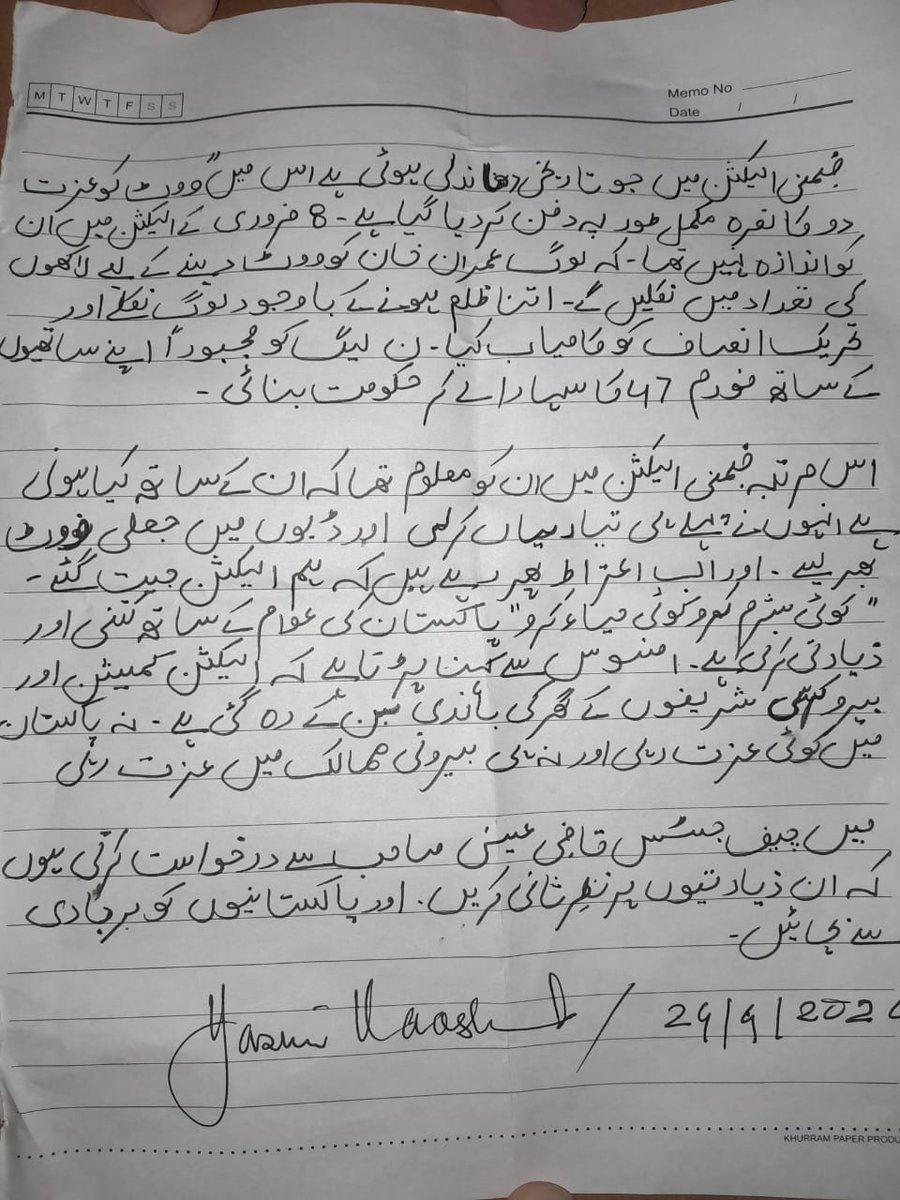 M T W T F S S
Memo No
Date / /
ضمنی الیکشن میں جو تاریخی دھاندلی ہوئی ہے اس میں "ووٹ کو عزت
دو کا نعرہ مکمل طور پہ دفن کر دیا گیا ہے۔ 8 فروری کے الیکشن میں ان
کو اندازہ نہیں تھا۔ کہ لوگ عمران خان کو ووٹ دینے کے لیے لاکھوں
کی تعداد میں نکلیں گے۔ اتنا ظلم ہونے کے باوجود لوگ نکلے اور
تحریک انصاف کو کامیاب کیا۔ ن لیگ کو مجبوراً اپنے ساتھیوں
کے ساتھ فورم 47 کا سہارا لے کر حکومت بنائی۔
اس مرتبہ ضمنی الیکشن میں ان کو معلوم تھا کہ ان کے ساتھ کیا ہونی
ہے انہوں نے پہلے ہی تیاریاں کر لی اور ڈبوں میں جعلی ووٹ
بھر لیے۔ اور اب پھر رہے ہیں کہ ہم الیکشن جیت گئے۔
"کوئی شرم کرو کوئی حیاء کرو" پاکستان کی عوام کے ساتھ کتنی اور
زیادتی کرنی ہے۔ افسوس سے کہنا پڑتا ہے کہ الیکشن کمیشن اور
شریفوں کے گھر کی باندی بن کے رہ گئی ہے۔ نہ پاکستان
میں کوئی عزت رہی اور نہ ہی بیرونی ممالک میں عزت رہی
میں چیف جسٹس قاضی عیسیٰ صاحب سے درخواست کرتی ہوں
کہ ان زیادتیوں پر نظر ثانی کریں۔ اور پاکستانیوں کو بربادی
سے بچائیں۔
Yasmin Raashid / 24/4/2024
KHURRAM PAPER PRODU